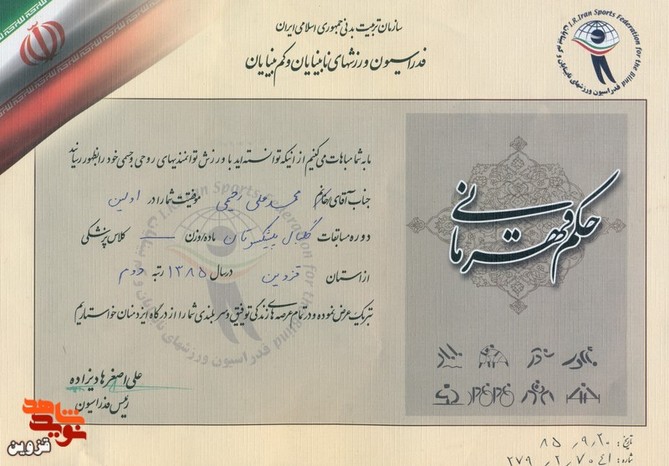 سازمان تربیت بدنی جمهوری اسلامی ایران
فدراسیون ورزشهای نابینایان و کم بینایان
I.R.Iran Sports Federation for the Blind
فدراسیون ورزشهای نابینایان
ما به شما مباهات می‌کنیم از اینکه توانسته‌اید با ورزش توانمندیهای روحی و جسمی خود را بظهور رسانید
جناب آقای/خانم محمد علی رحیمی موفقیت شما را در اولین
دوره مسابقات گلبال پیشکسوتان ماده/وزن — کلاس پزشکی
از استان قزوین در سال ۱۳۸۵ رتبه دوم
تبریک عرض نموده و در تمام عرصه‌های زندگی توفیق و سربلندی شما را از درگاه ایزد منان خواستاریم
علی اصغر هادیزاده
رئیس فدراسیون
حکم قهرمانی
تاریخ: ۸۵/۹/۲۰
شماره: ۲۷۹/۲/۷۰۴۱
نوید شاهد
قزوین